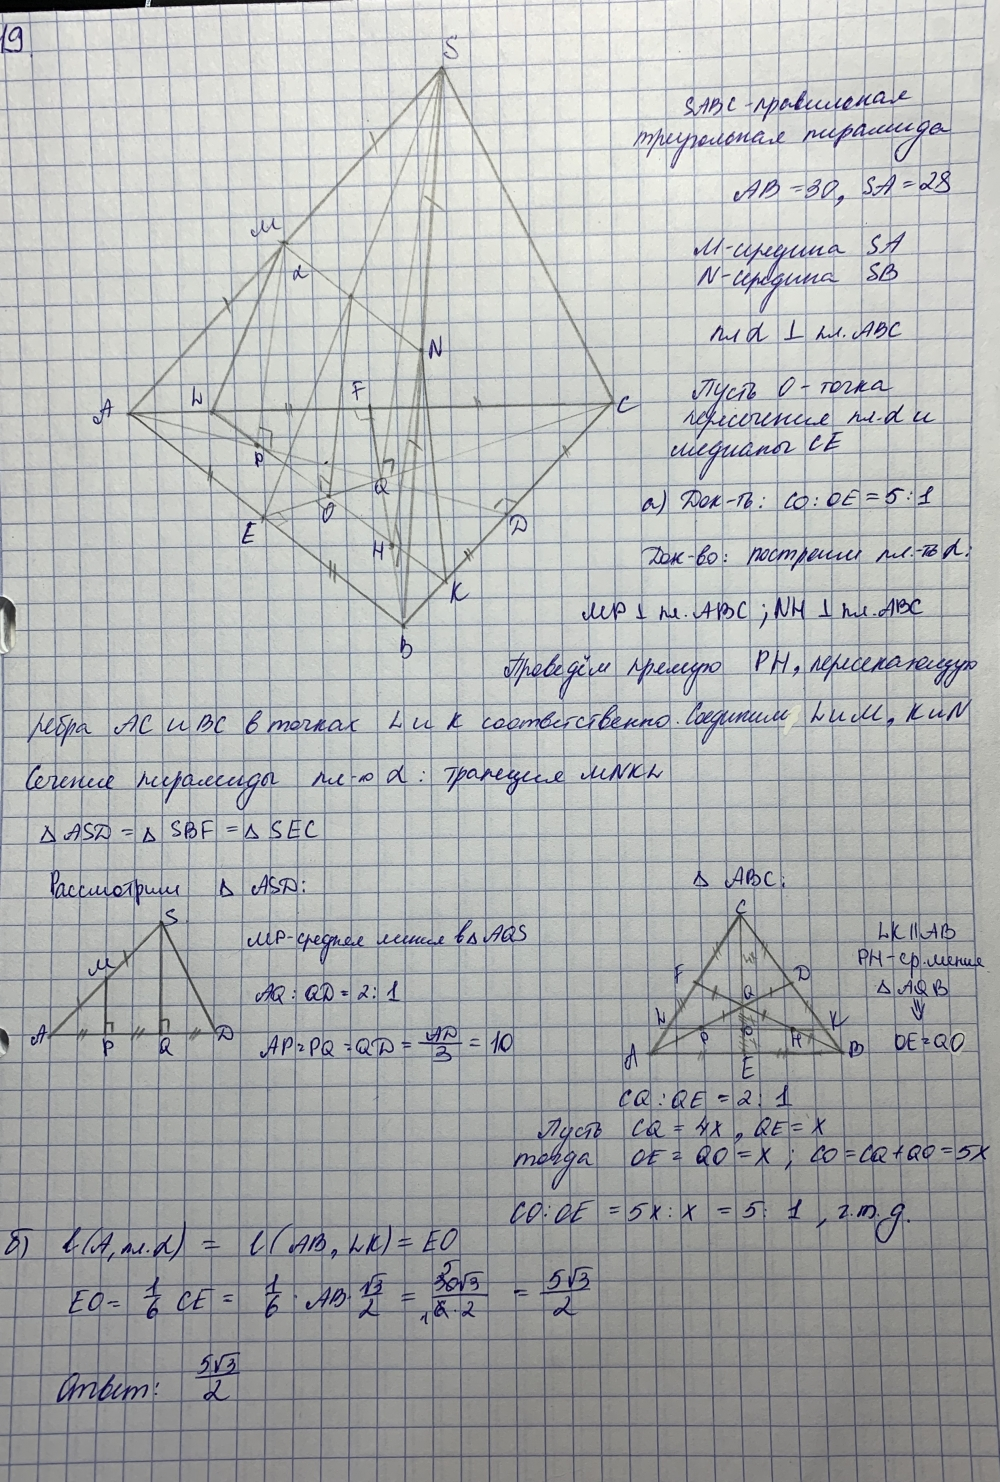 19.
SABC - правильная
треугольная пирамида
AB = 30, SA = 28
M - середина SA
N - середина SB
пл α ⊥ пл. ABC
Пусть O - точка
пересечения пл. α и
медианы CE
а) Док-ть: CO : OE = 5 : 1
Док-во: построим пл-ть α:
MP ⊥ пл. ABC ; NH ⊥ пл. ABC
Проведём прямую PH, пересекающую
рёбра AC и BC в точках L и K соответственно. Соединим L и M, K и N
Сечение пирамиды пл-ю α : трапеция MNKL
△ ASD = △ SBF = △ SEC
Рассмотрим △ ASD:
△ ABC:
MP - средняя линия в △ AQS
AQ : QD = 2 : 1
AP = PQ = QD = AD/3 = 10
LK || AB
PH - ср. линия
△ AQB
⇓
OE = QO
CQ : QE = 2 : 1
Пусть CQ = 4x, QE = x
тогда OE = QO = x ; CO = CQ + QO = 5x
CO : OE = 5x : x = 5 : 1 , ч.т.д.
б) ℓ(A, пл. α) = ℓ(AB, LK) = EO
EO = 1/6 CE = 1/6 · AB · √3/2 = 30√3/6·2 = 5√3/2
Ответ: 5√3/2
S
M
α
N
A
L
F
C
P
Q
E
O
D
H
K
B
S
M
A
P
Q
D
C
F
D
Q
L
P
O
H
K
A
E
B